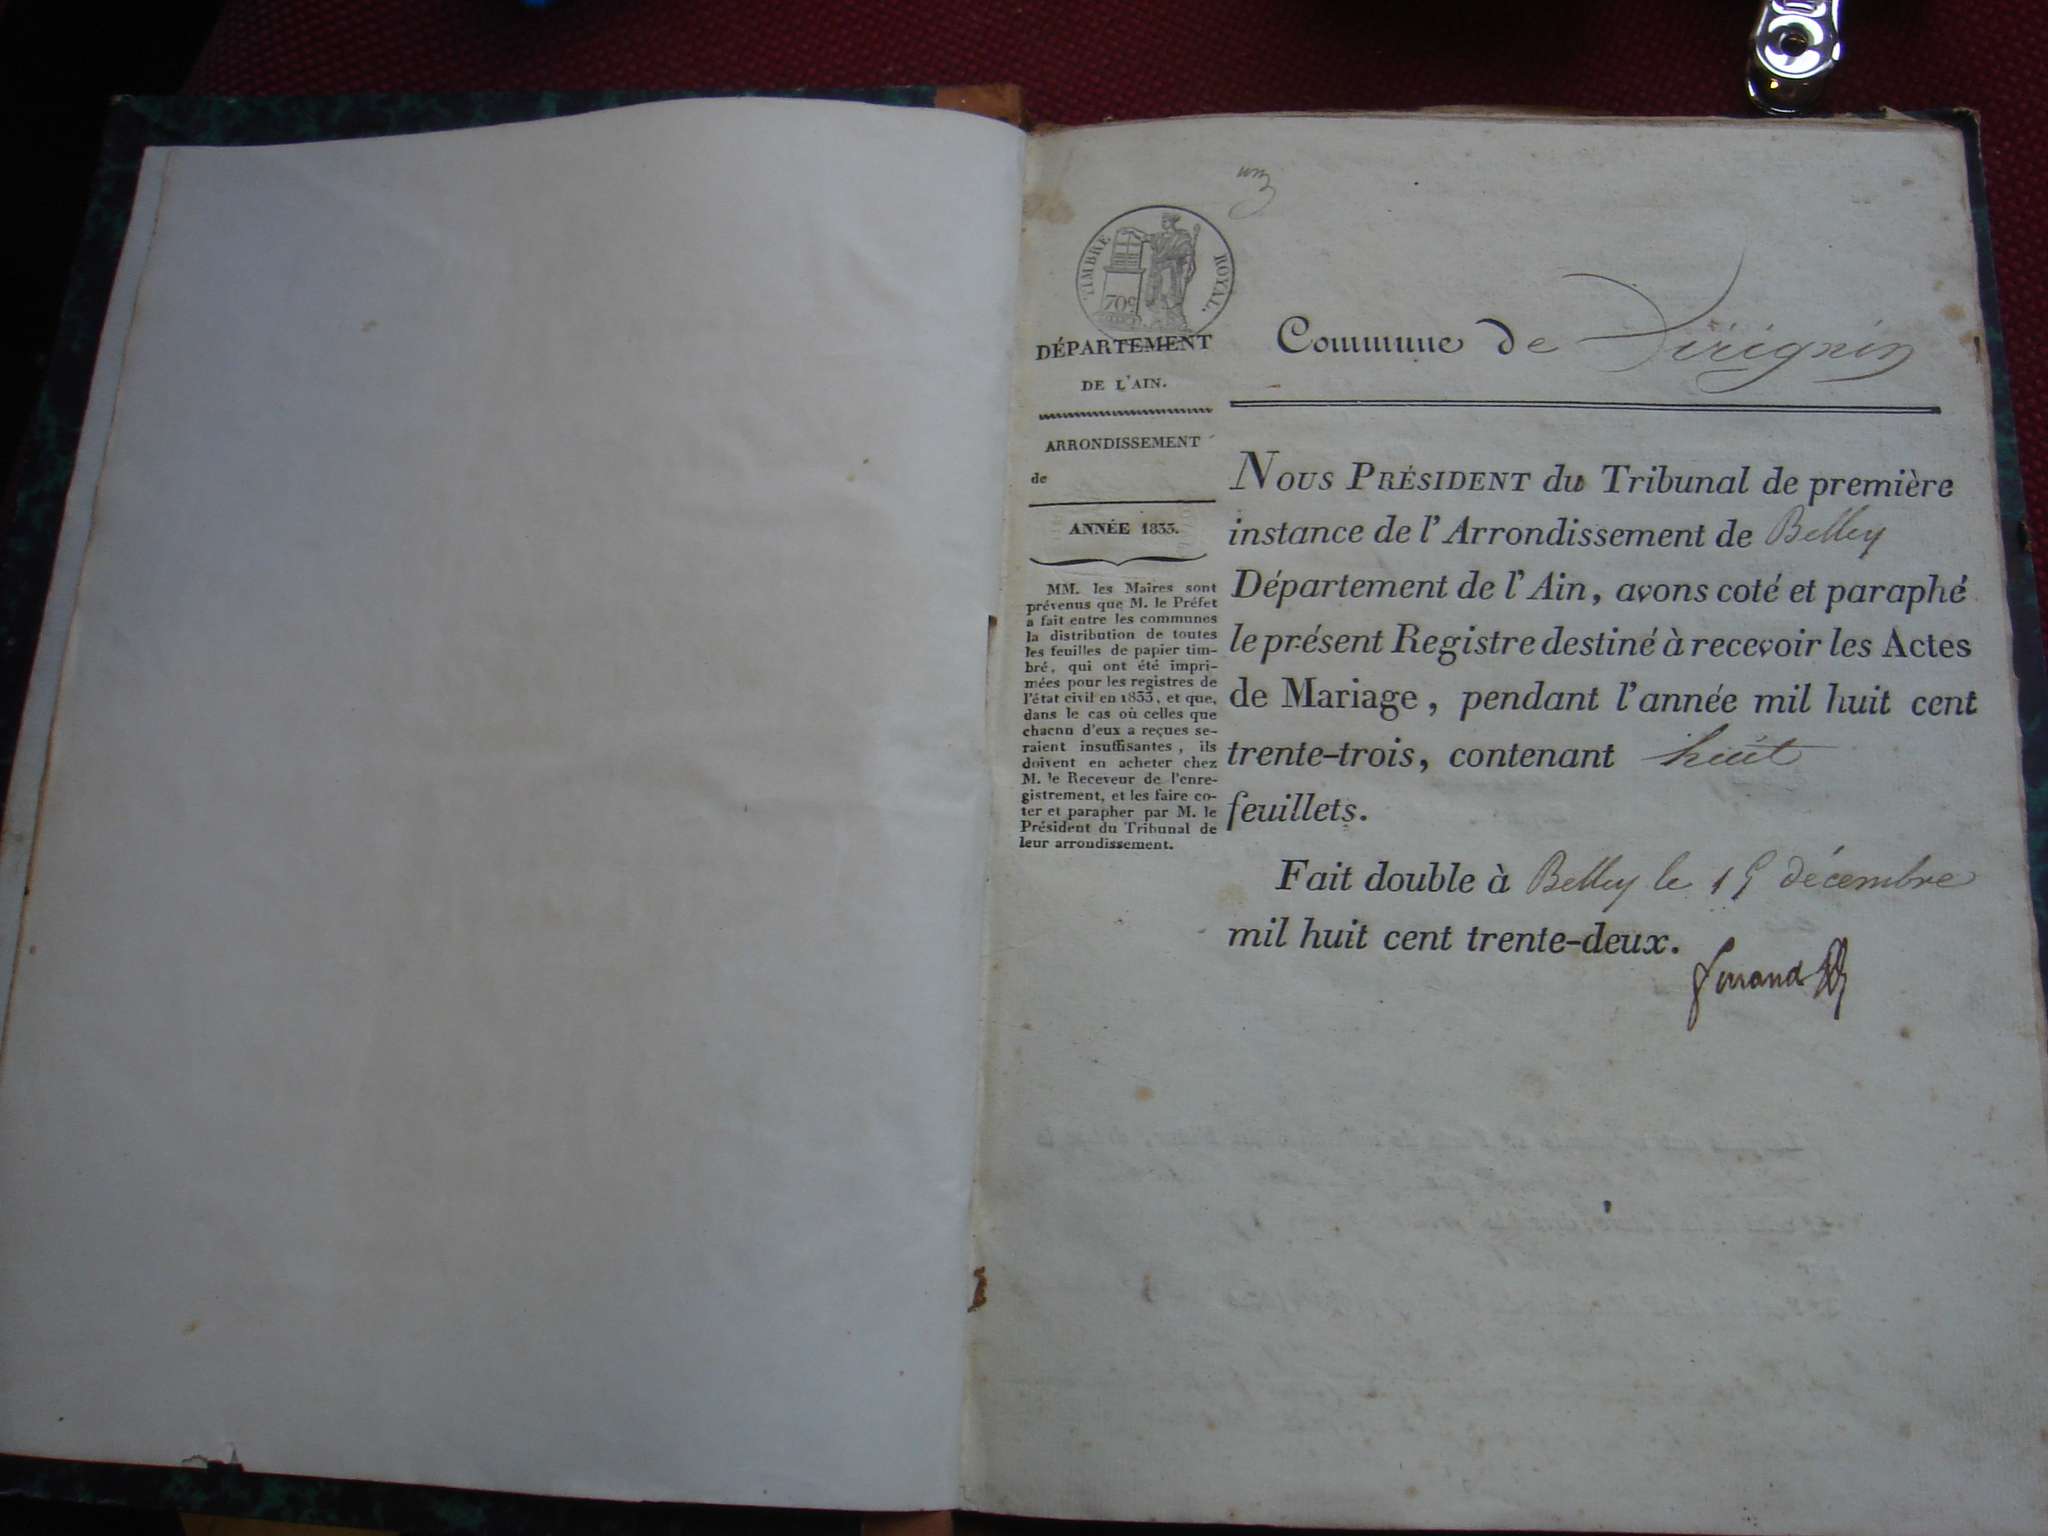 un
TIMBRE ROYAL.
70c
DÉPARTEMENT
DE L'AIN.
ARRONDISSEMENT
de
ANNÉE 1833.
MM. les Maires sont
prévenus que M. le Préfet
a fait entre les communes
la distribution de toutes
les feuilles de papier tim-
bré, qui ont été impri-
mées pour les registres de
l'état civil en 1833, et que,
dans le cas où celles que
chacun d'eux a reçues se-
raient insuffisantes, ils
doivent en acheter chez
M. le Receveur de l'enre-
gistrement, et les faire co-
ter et parapher par M. le
Président du Tribunal de
leur arrondissement.
Commune de Virignin
NOUS PRÉSIDENT du Tribunal de première
instance de l'Arrondissement de Belley
Département de l'Ain, avons coté et paraphé
le présent Registre destiné à recevoir les Actes
de Mariage, pendant l'année mil huit cent
trente-trois, contenant huit
feuillets.
Fait double à Belley le 15 décembre
mil huit cent trente-deux.